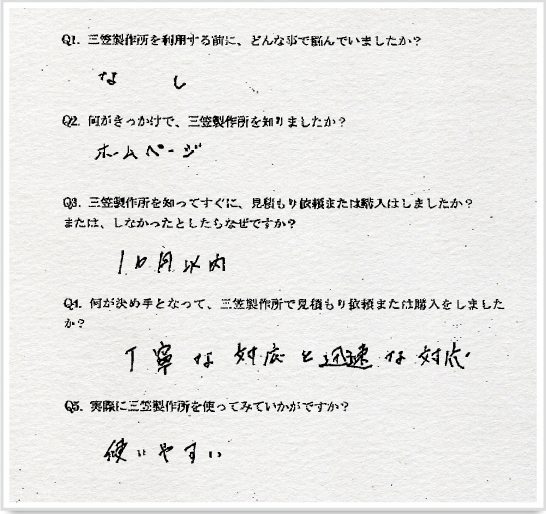 Q1. 三笠製作所を利用する前に、どんな事で悩んでいましたか？
なし
Q2. 何がきっかけで、三笠製作所を知りましたか？
ホームページ
Q3. 三笠製作所を知ってすぐに、見積もり依頼または購入はしましたか？
または、しなかったとしたらなぜですか？
1ヶ月以内
Q4. 何が決め手となって、三笠製作所で見積もり依頼または購入をしました
か？
丁寧な対応と迅速な対応
Q5. 実際に三笠製作所を使ってみていかがですか？
使いやすい